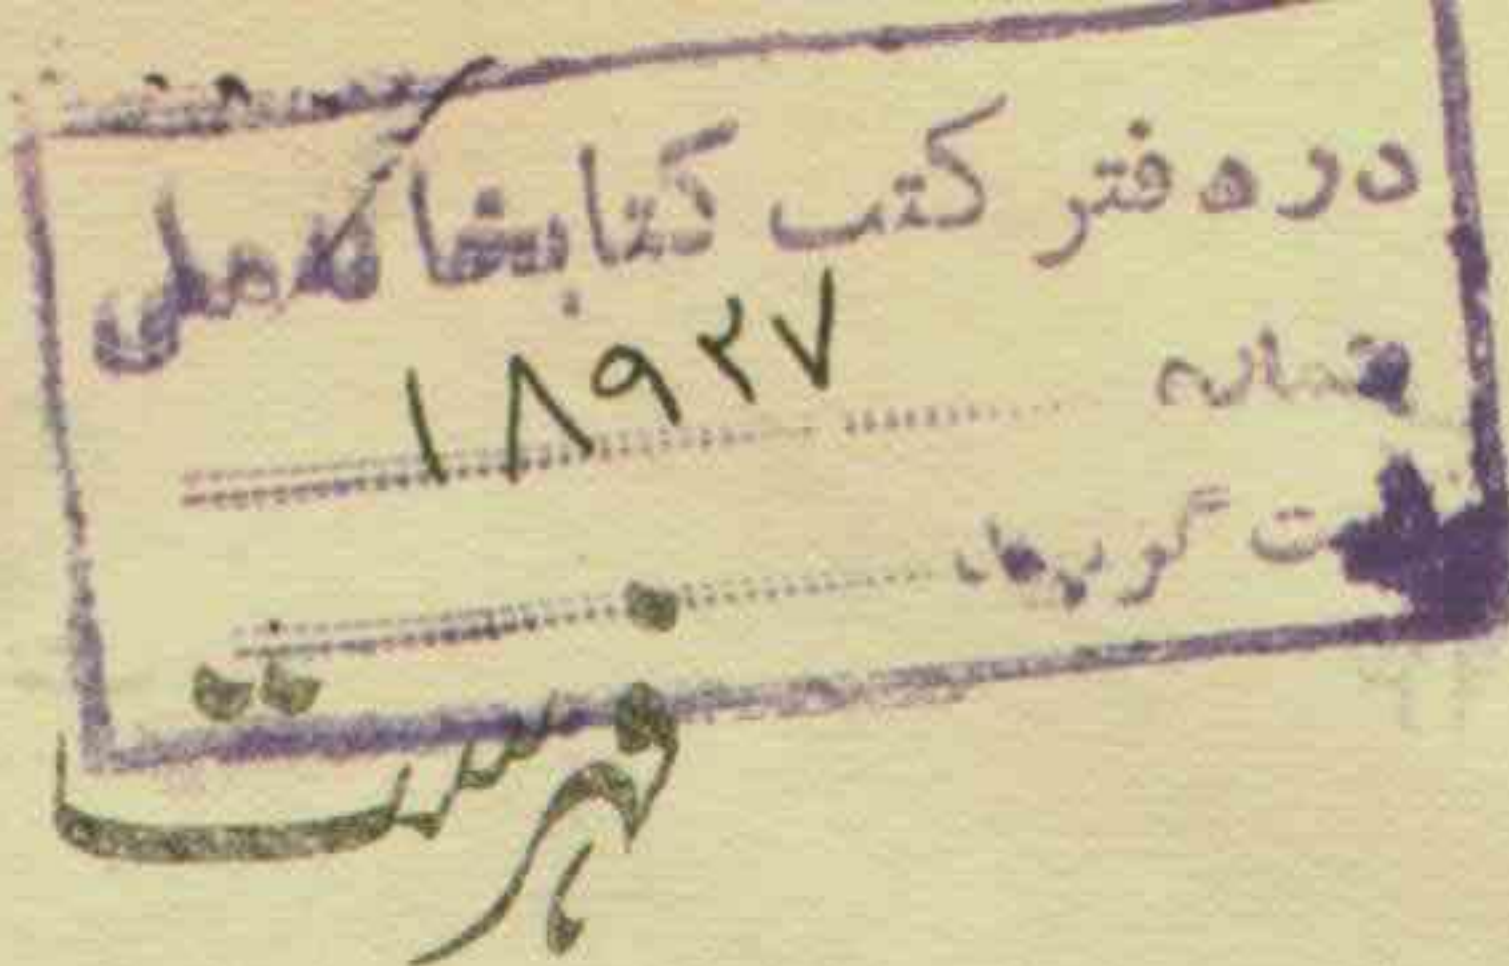 در دفتر کتب کتابخانه ملی
بشماره ۱۸۹۲۷
ثبت گردید
فهرست